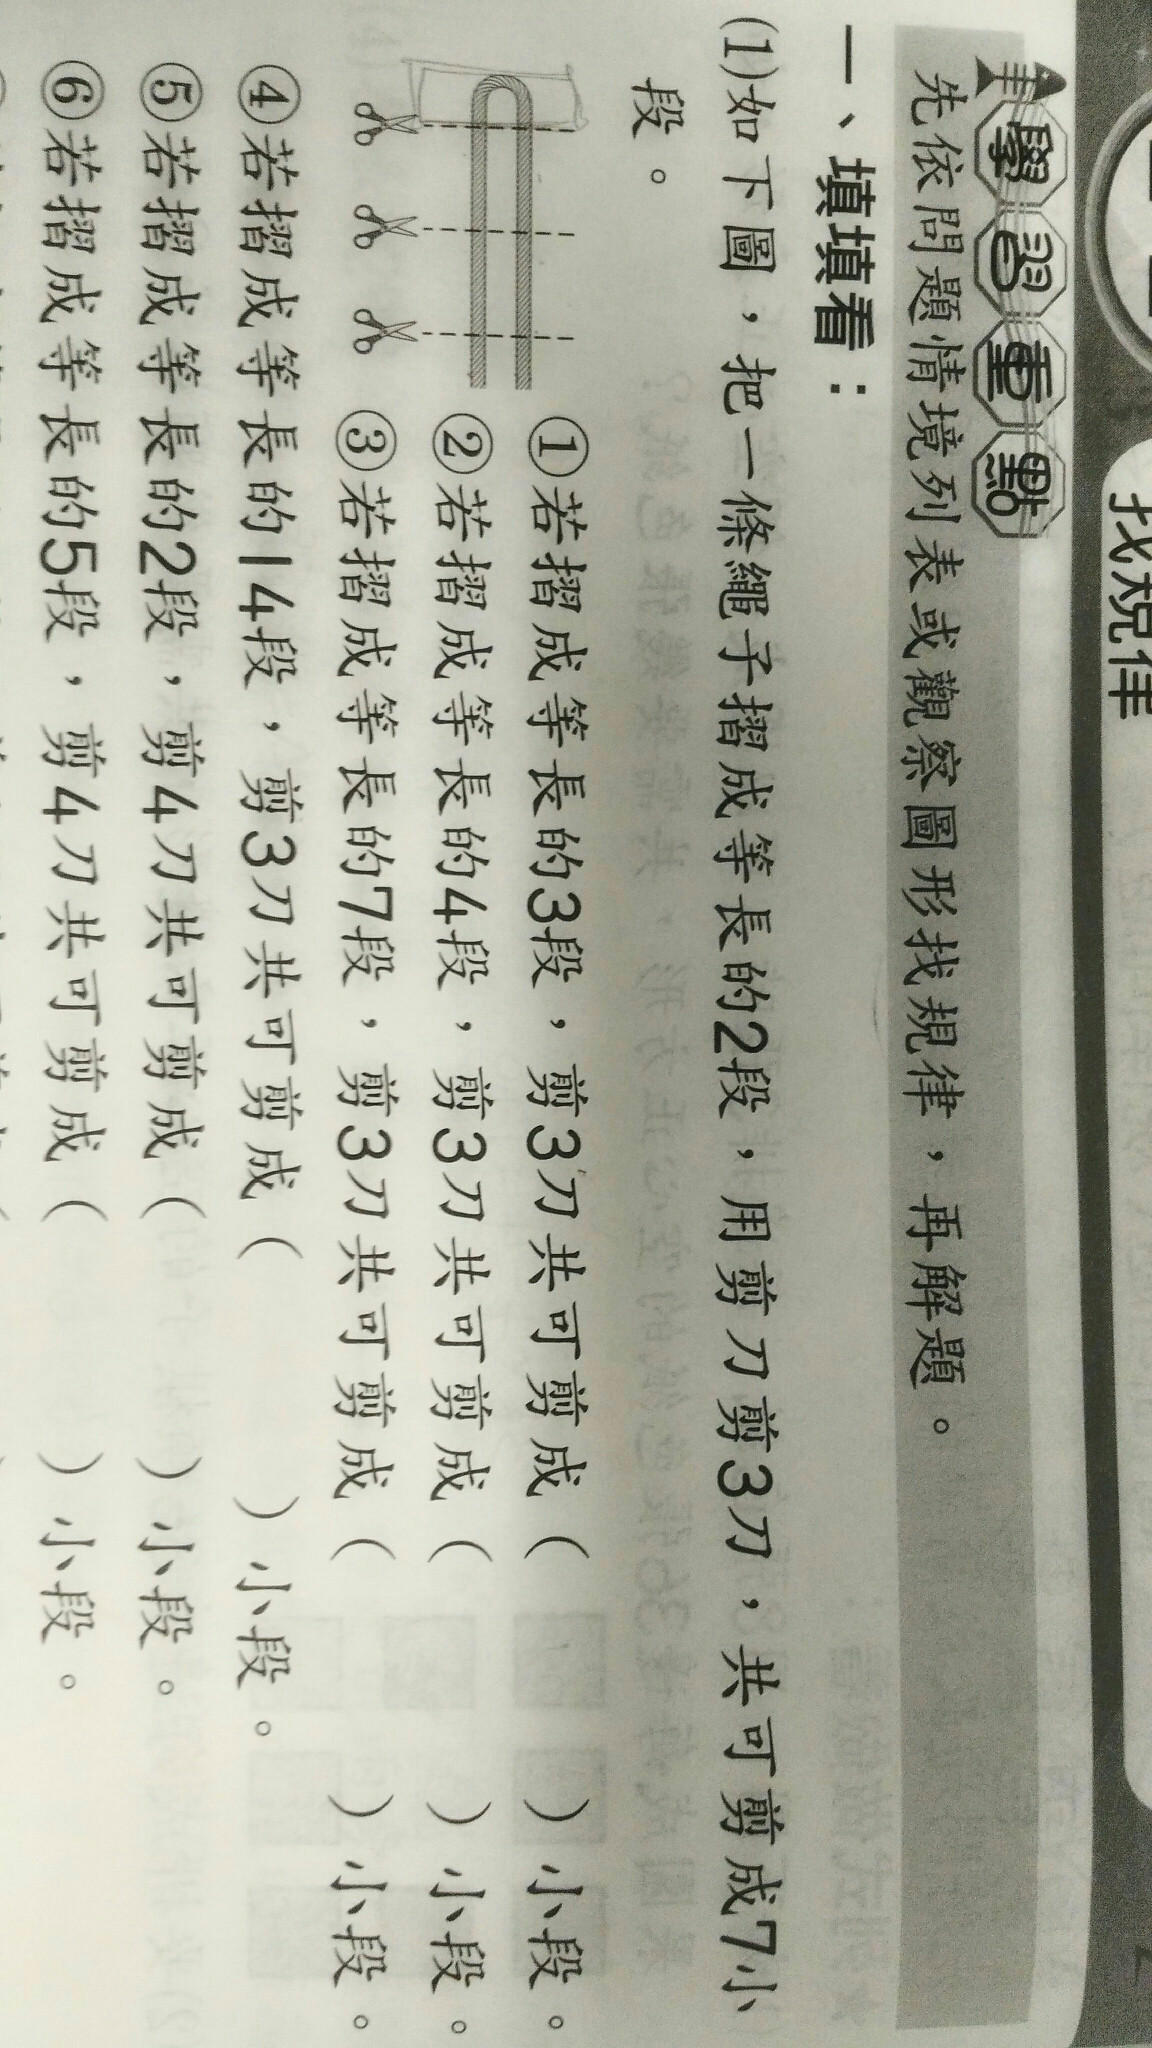 找規律
學習重點
先依問題情境列表或觀察圖形找規律，再解題。
一、填填看：
(1)如下圖，把一條繩子摺成等長的2段，用剪刀剪3刀，共可剪成7小
段。
①若摺成等長的3段，剪3刀共可剪成（　　　）小段。
②若摺成等長的4段，剪3刀共可剪成（　　　）小段。
③若摺成等長的7段，剪3刀共可剪成（　　　）小段。
④若摺成等長的14段，剪3刀共可剪成（　　　）小段。
⑤若摺成等長的2段，剪4刀共可剪成（　　　）小段。
⑥若摺成等長的5段，剪4刀共可剪成（　　　）小段。